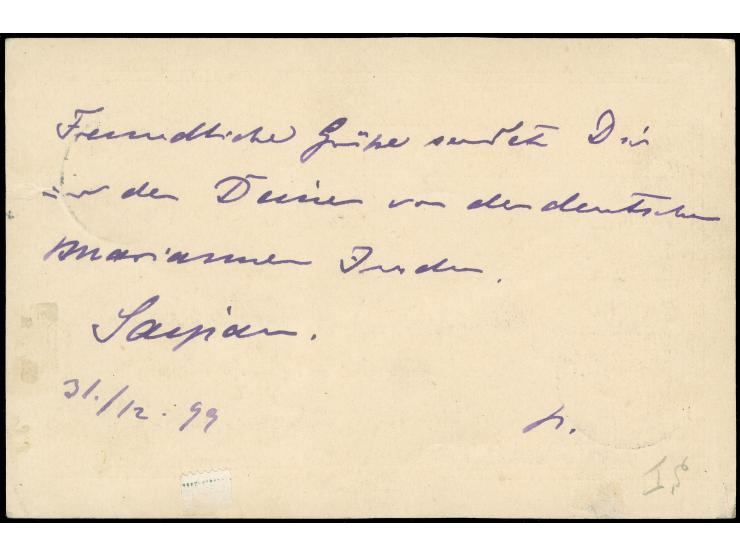 Freundliche Grüße sendet Dir
und den Deinen von den deutschen
Mariannen Inseln.
Saipan.
31./12. 99